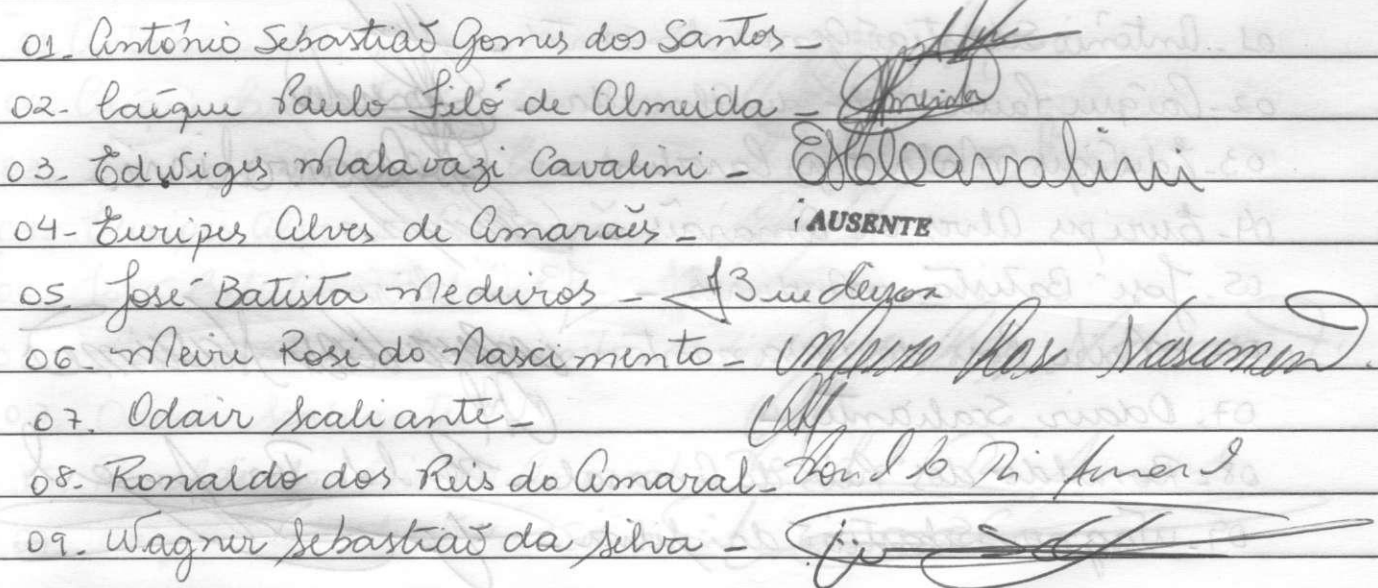 01- Antônio Sebastião Gomes dos Santos -
02- Caíque Paulo Filó de Almeida - Almeida
03- Edwiges Malavazi Cavalini - EMCavalini
04- Euripes Alves de Amarães - AUSENTE
05. José Batista Medeiros - JB Medeiros
06- Meire Rosi do Nascimento -
07. Odair Scaliante -
08- Ronaldo dos Reis do Amaral -
09- Wagner Sebastião da Silva -